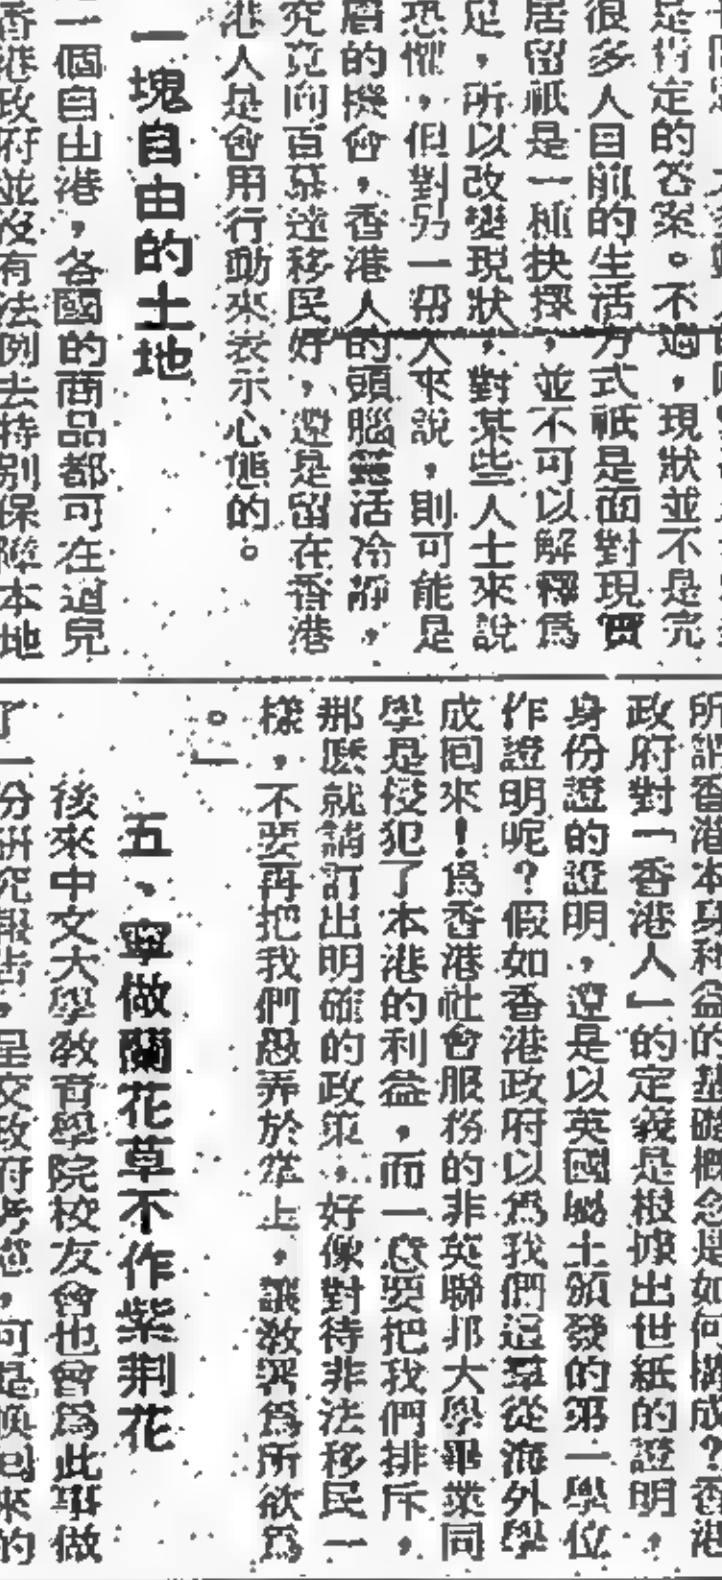 是肯定的答案。不過，現狀並不是完
很多人目前的生活方式祇是面對現實
居留祇是一種抉擇，並不可以解釋為
足，所以改變現狀，對某些人士來說
恐懼，但對另一羣人來說，則可能是
眉的機會，香港人的頭腦靈活冷靜，
究竟向百慕達移民好，還是留在香港
港人是會用行動來表示心態的。
一塊自由的土地
一個自由港，各國的商品都可在這兒
香港政府並沒有法例去特別保障本地
所謂香港本身利益的基礎概念是如何構成？香港
政府對「香港人」的定義是根據出世紙的證明，
身份證的證明，還是以英國屬土頒發的第一學位
作證明呢？假如香港政府以為我們這羣從海外學
成回來！為香港社會服務的非英聯邦大學畢業同
學是侵犯了本港的利益，而一意要把我們排斥，
那麼就請訂出明確的政策，好像對待非法移民一
樣，不要再把我們愚弄於掌上，讓教署為所欲為
。」
五、寧做蘭花草不作紫荊花
後來中文大學教育學院校友會也曾為此事做
了一份研究報告，呈交政府考慮，可是換回來的